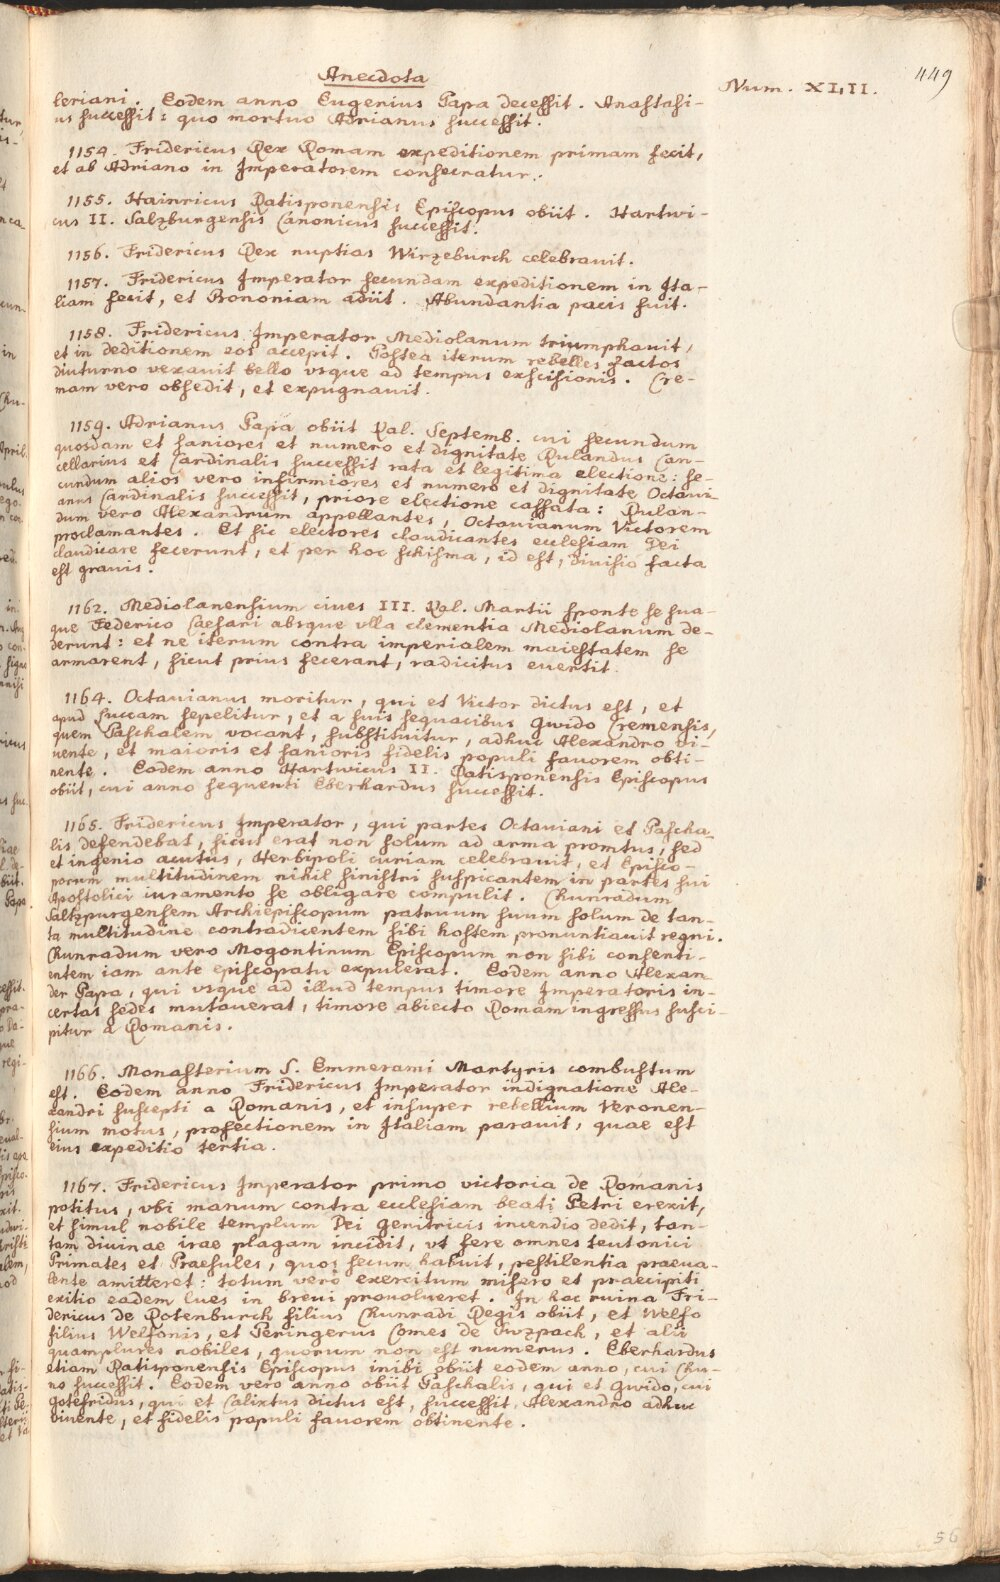 449
Anecdota
Num. XLII.
teriani. Eodem anno Eugenius Papa decessit. Anastasi-
us successit: quo mortuo Adrianus successit.
1154. Fridericus Rex Romam expeditionem primam fecit,
et ab Adriano in Imperatorem consecratur.
1155. Hainricus Ratisponensis Episcopus obiit. Hartwi-
cus II. Salzburgensis Canonicus successit.
1156. Fridericus Rex nuptias Wirzeburch celebrauit.
1157. Fridericus Imperator secundam expeditionem in Ita-
liam fecit, et Bononiam adiit. Abundantia pacis fuit.
1158. Fridericus Imperator Mediolanum triumphauit,
et in deditionem eos accepit. Postea iterum rebelles factos
diuturno vexauit bello vsque ad tempus exscisionis. Cre-
mam vero obsedit, et expugnauit.
1159. Adrianus Papa obiit Kal. Septemb. cui secundum
quosdam et saniores et numero et dignitate Rulandus Can-
cellarius et Cardinalis successit rata et legitima electione: se-
cundum alios vero infirmiores et numero et dignitate Octaui-
anus Cardinalis successit, priore electione cassata: Rulan-
dum vero Alexandrum appellantes, Octauianum Victorem
proclamantes. Et sic electores claudicantes ecclesiam Dei
claudicare fecerunt, et per hoc schisma, id est, diuisio facta
est grauis.
1162. Mediolanensium ciues III. Kal. Martii sponte se sua-
que Federico Caesari absque vlla clementia Mediolanum de-
derunt: et ne iterum contra imperialem maiestatem se
armarent, sicut prius fecerant, radicitus euertit.
1164. Octauianus moritur, qui et Victor dictus est, et
apud Luccam sepelitur, et a suis sequacibus Gwido Cremensis,
quem Paschalem vocant, substituitur, adhuc Alexandro vi-
uente, et maioris et sanioris fidelis populi fauorem obti-
nente. Eodem anno Hartwicus II. Ratisponensis Episcopus
obiit, cui anno sequenti Eberhardus successit.
1165. Fridericus Imperator, qui partes Octauiani et Pascha-
lis defendebat, sicut erat non solum ad arma promtus, sed
et ingenio acutus, Herbipoli curiam celebrauit, et Episco-
porum multitudinem nihil sinistri suspicantem in partes sui
Apostolici iuramento se obligare compulit. Chunradum
Saltzpurgensem Archiepiscopum patruum suum solum de tan-
ta multitudine contradicentem sibi hostem pronuntiauit regni.
Chunradum vero Mogontinum Episcopum non sibi consenti-
entem iam ante episcopatu expulerat. Eodem anno Alexan-
der Papa, qui vsque ad illud tempus timore Imperatoris in-
certas sedes mutauerat, timore abiecto Romam ingressus susci-
pitur a Romanis.
1166. Monasterium S. Emmerami Martyris combustum
est. Eodem anno Fridericus Imperator indignatione Ale-
xandri suscepti a Romanis, et insuper rebellium Veronen-
sium motus, profectionem in Italiam parauit, quae est
eius expeditio tertia.
1167. Fridericus Imperator primo victoria de Romanis
potitus, vbi manum contra ecclesiam beati Petri erexit,
et simul nobile templum Dei genitricis incendio dedit, tan-
tam diuinae irae plagam incidit, vt fere omnes teutonici
Primates et Praesules, quos secum habuit, pestilentia praeua-
lente amitteret: totum vero exercitum misero et praecipiti
exitio eadem lues in breui prouolueret. In hac ruina Fri-
dericus de Rotenburch filius Chunradi Regis obiit, et Welfo
filius Welfonis, et Peringerus Comes de Swzpach, et alii
quamplures nobiles, quorum non est numerus. Eberhardus
etiam Ratisponensis Episcopus inibi obiit eodem anno, cui Chu-
no successit. Eodem vero anno obiit Paschalis, qui et Gwido, cui
Gotefridus, qui et Calixtus dictus est, successit, Alexandro adhuc
viuente, et fidelis populi fauorem obtinente.
56